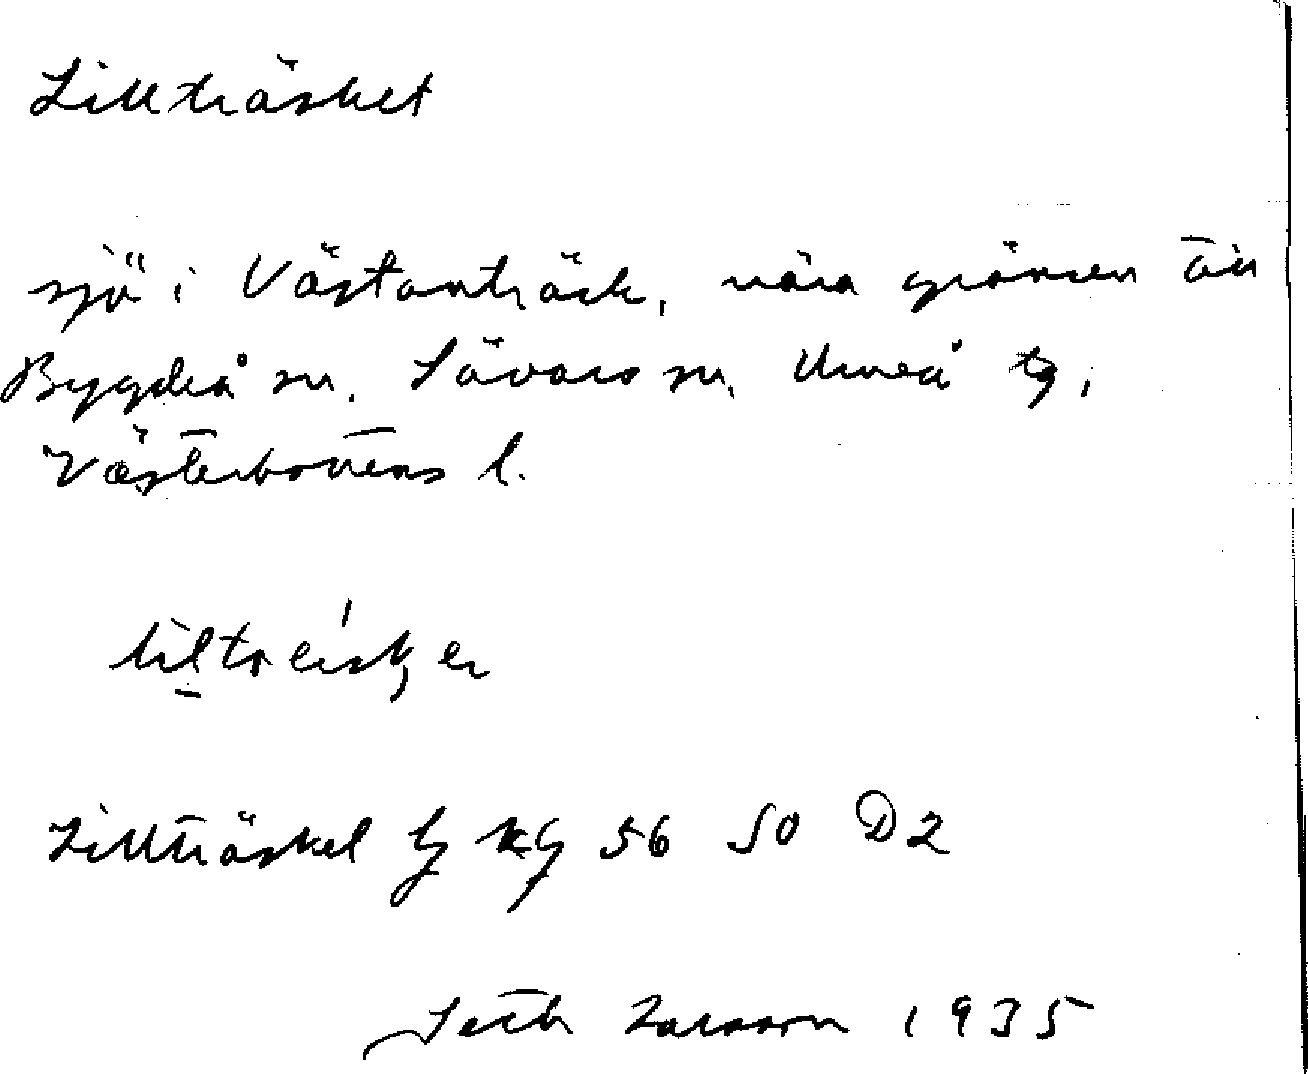 Lillträsket
sjö i Västanträsk, nära gränsen till
Bygdeå sn. Sävars sn, Umeå tg,
Västerbottens l.
Lillträsket gkg 56 SO D2
Seth Larsson 1935